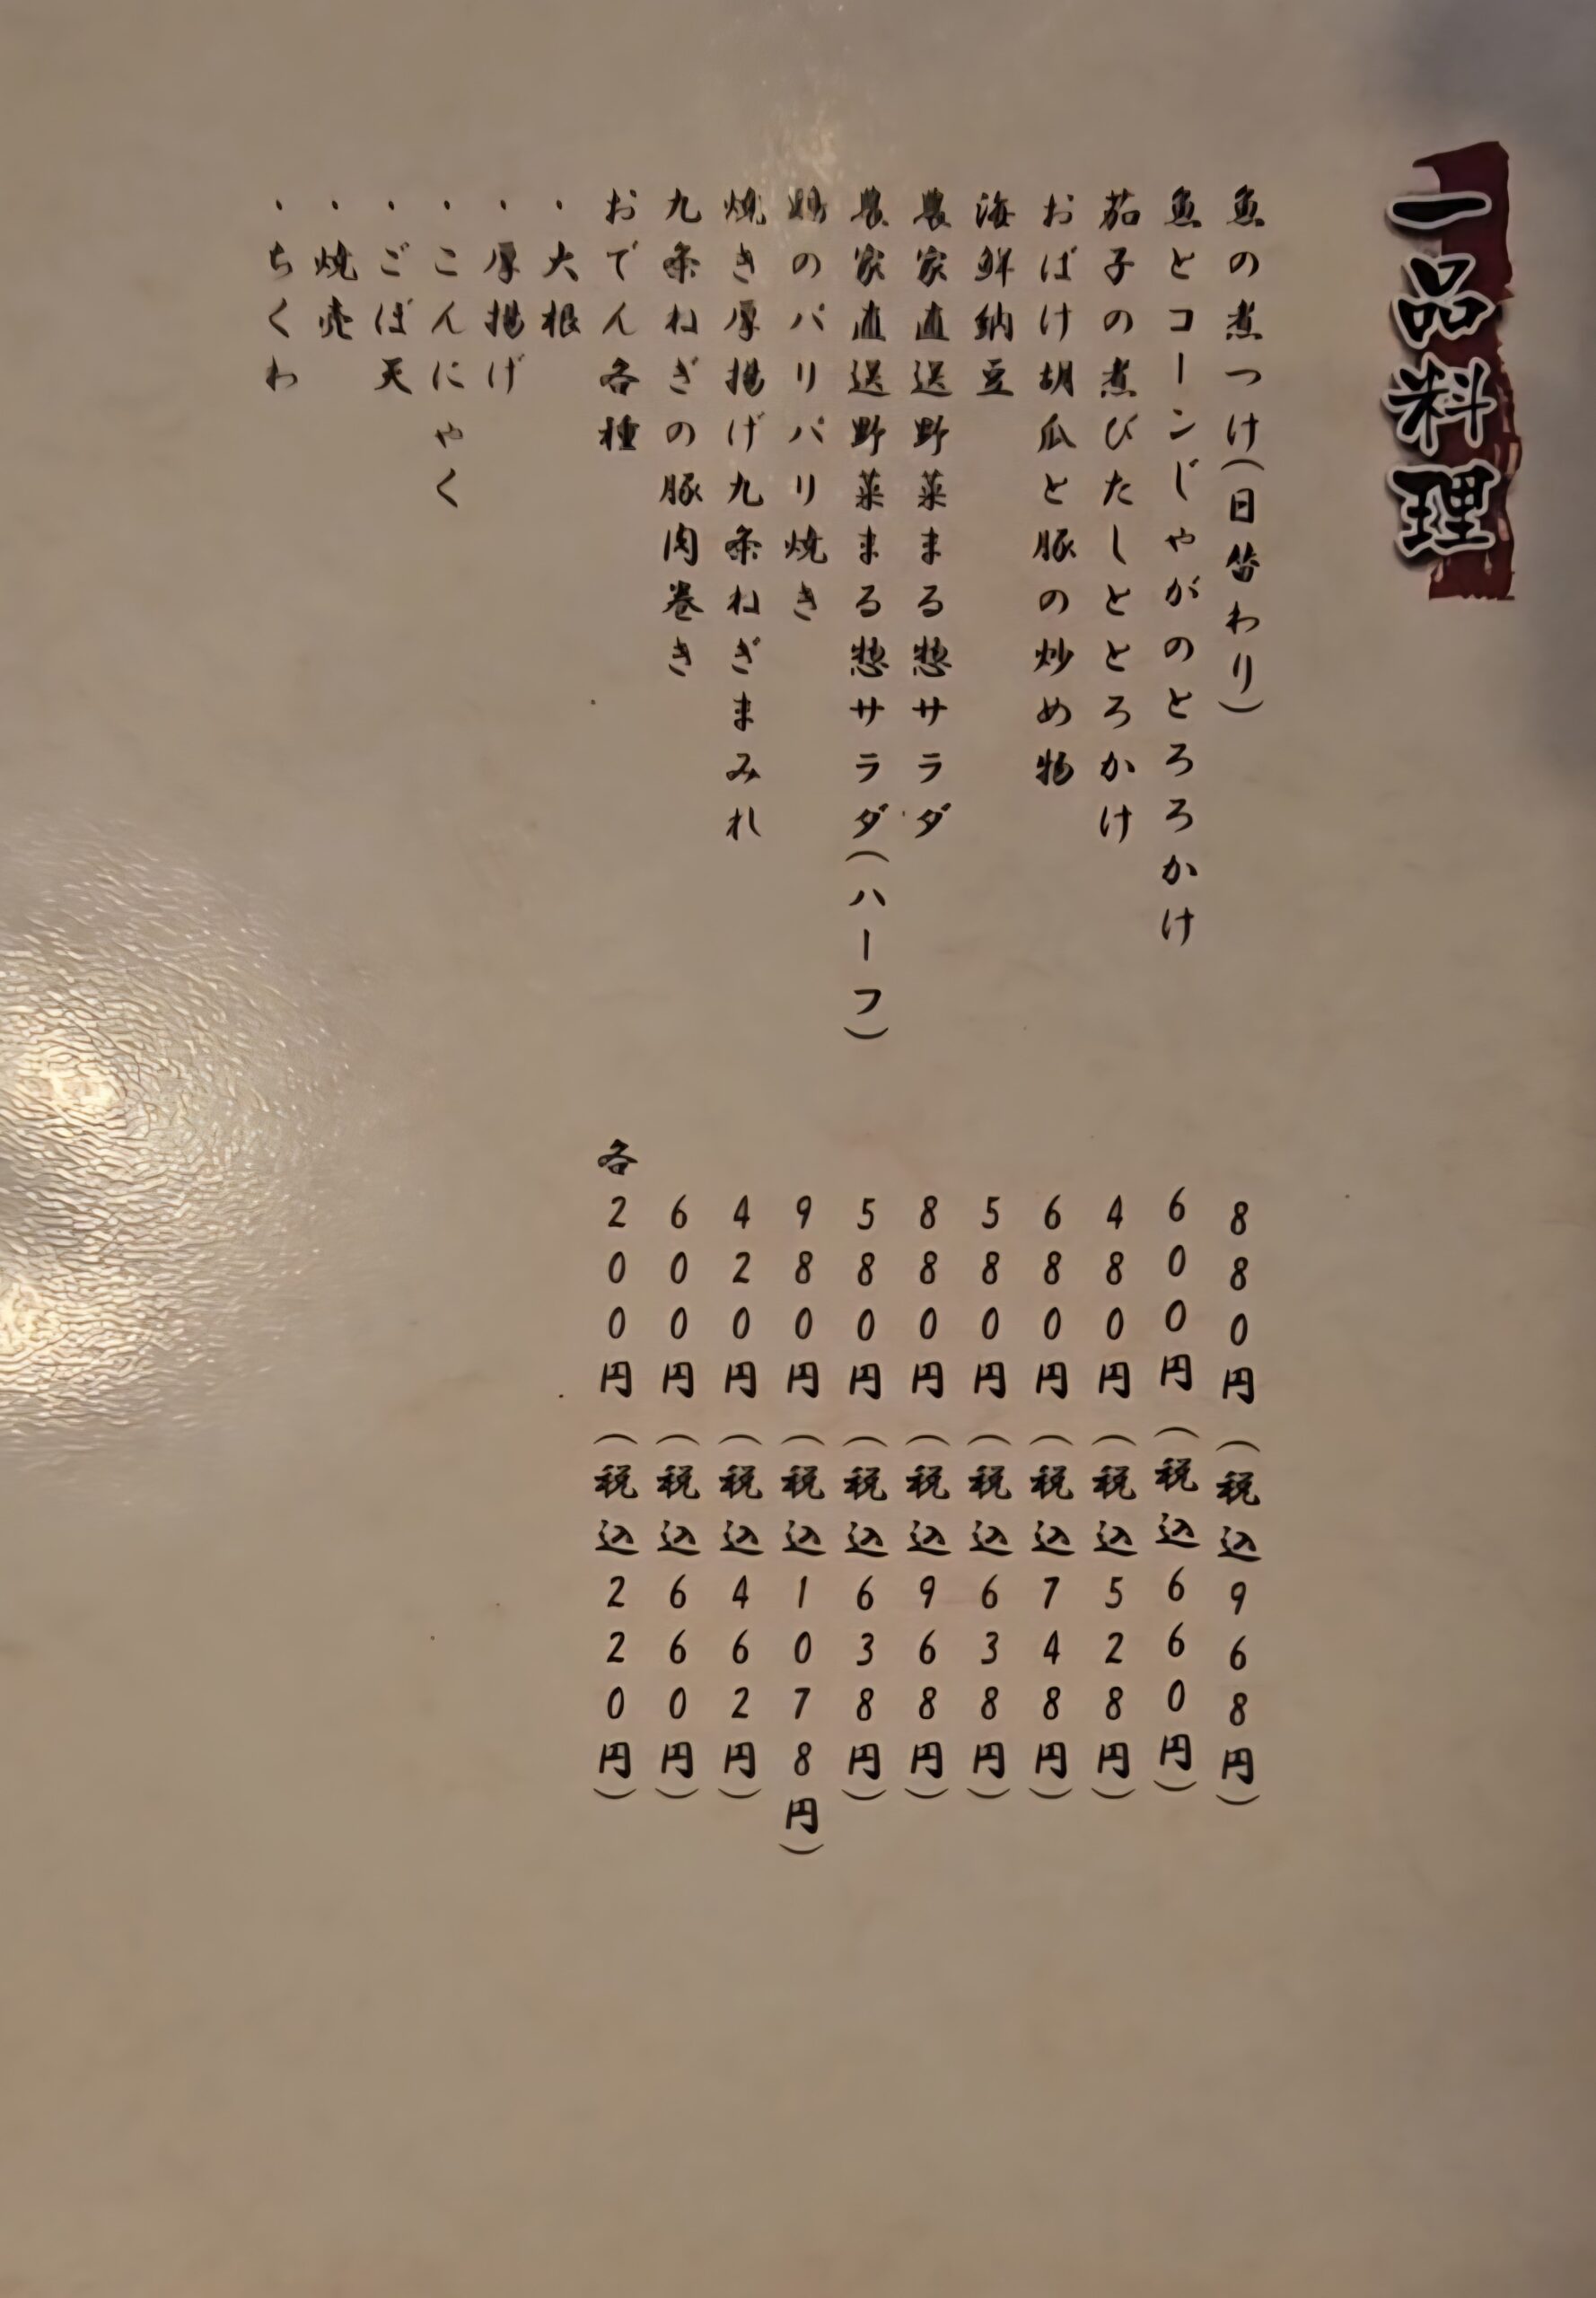 一品料理
魚の煮つけ(日替わり) 880円(税込968円)
魚とコーンじゃがのとろろかけ 600円(税込660円)
茄子の煮びたしととろかけ 480円(税込528円)
おばけ胡瓜と豚の炒め物 680円(税込748円)
海鮮納豆 580円(税込638円)
農家直送野菜まる惣サラダ 880円(税込968円)
農家直送野菜まる惣サラダ(ハーフ) 580円(税込638円)
のパリパリ焼き 980円(税込1078円)
焼き厚揚げ九条ねぎまみれ 420円(税込462円)
九条ねぎの豚肉巻き 600円(税込660円)
おでん各種 各200円(税込220円)
・大根
・厚揚げ
・こんにゃく
・ごぼ天
・焼売
・ちくわ